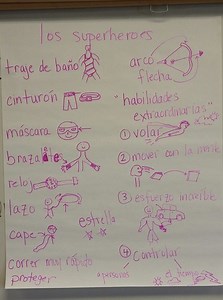 los superheroes
traje de baño
cinturón
máscara
brazalete
reloj
lazo
estrella
cape
correr muy rápido
proteger
arco
flecha
"habilidades
extraordinarias"
① volar
② mover con la mente
③ esfuerzo increíble
④ Controlar
a personas
tiempo